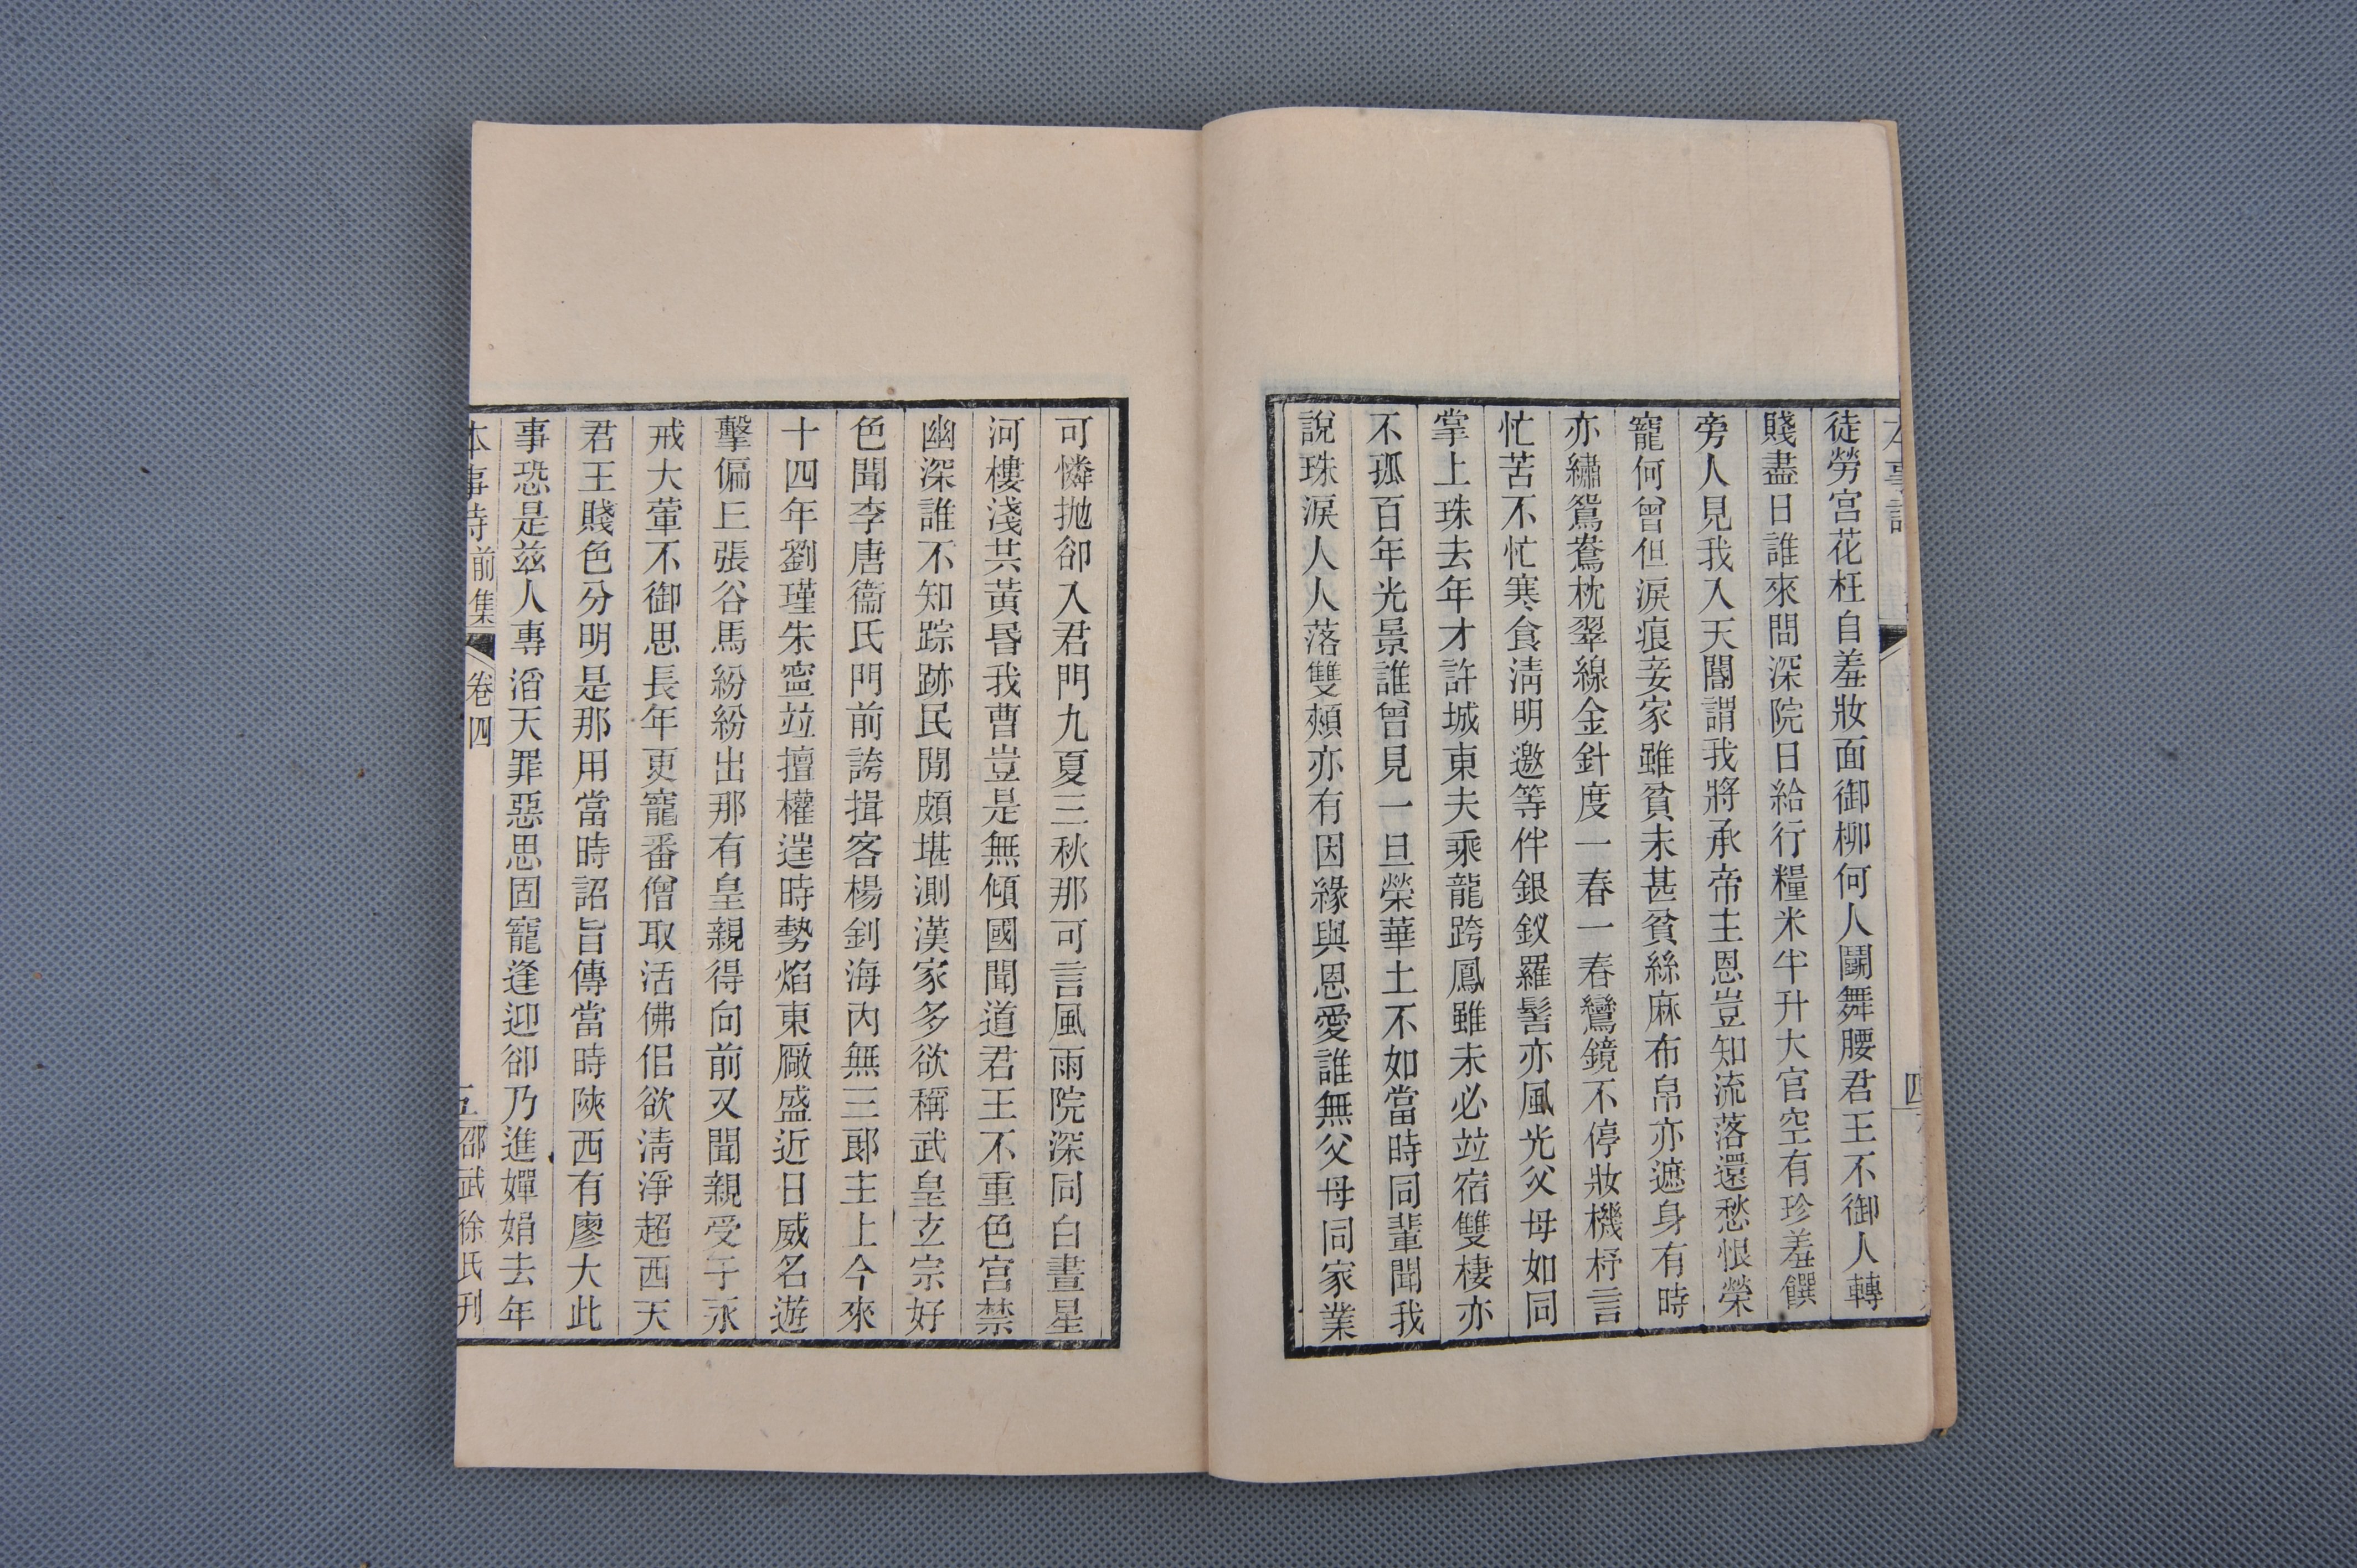 本事詩
四
徒勞宮花枉自羞妝面御柳何人鬬舞腰君王不御人轉
賤盡日誰來問深院日給行糧米半升大官空有珍羞饌
旁人見我入天閽謂我將承帝主恩豈知流落還愁恨榮
寵何曾但淚痕妾家雖貧未甚貧絲麻布帛亦遮身有時
亦繡鴛鴦枕翠線金針度一春一春鸞鏡不停妝機杼言
忙苦不忙寒食淸明邀等伴銀釵羅髻亦風光父母如同
掌上珠去年才許城東夫乘龍跨鳳雖未必竝宿雙棲亦
不孤百年光景誰曾見一旦榮華土不如當時同輩聞我
說珠淚人人落雙頰亦有因緣與恩愛誰無父母同家業
可憐抛卻入君門九夏三秋那可言風雨院深同白晝星
河樓淺共黃昬我曹豈是無傾國聞道君王不重色宮禁
幽深誰不知踪跡民閒頗堪測漢家多欲稱武皇玄宗好
色聞李唐衞氏門前誇揖客楊釗海內無三郞主上今來
十四年劉瑾朱寧竝擅權逞時勢焰東厰盛近日威名遊
擊偏江張谷馬紛紛出那有皇親得向前又聞親受于永
戒大葷不御思長年更寵番僧取活佛侶欲淸淨超西天
君王賤色分明是那用當時詔旨傳當時陜西有廖大此
事恐是兹人專滔天罪惡思固寵逢迎卻乃進嬋娟去年
本事詩 前集 卷四
五 邵武徐氏刊